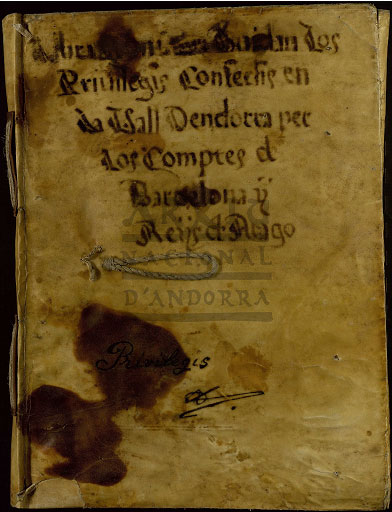 Los
Privilegis Consedis en
la Vall Dendorra per
los Comptes d
Barcelona ÿ
Reÿs d Arago
ARXIU
NACIONAL
D'ANDORRA
Privilegis